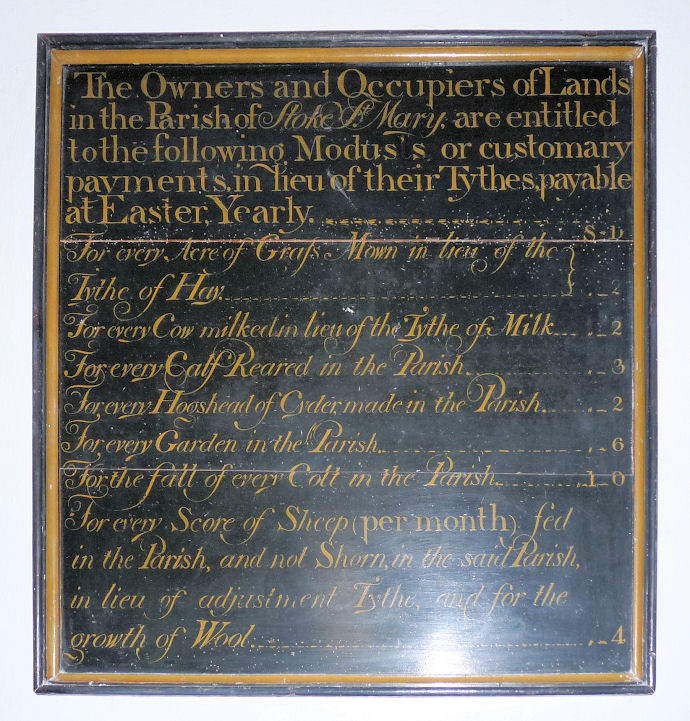 The Owners and Occupiers of Lands
in the Parish of Stoke St Mary, are entitled
to the following Modus's or customary
payments, in lieu of their Tythes, payable
at Easter, Yearly.
S. D
For every Acre of Grass Mown in lieu of the
Tythe of Hay. 2
For every Cow milked in lieu of the Tythe of Milk 2
For every Calf Reared in the Parish. 3
For every Hogshead of Cyder made in the Parish. 2
For every Garden in the Parish. 6
For the fall of every Colt in the Parish. 1 0
For every Score of Sheep (per month) fed
in the Parish, and not Shorn, in the said Parish,
in lieu of adjustment Tythe, and for the
growth of Wool. 4